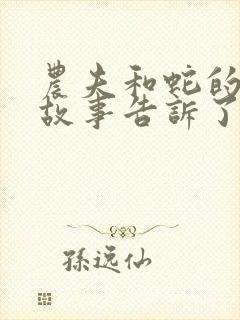 農夫和蛇的
故事告訴了
孫逸仙